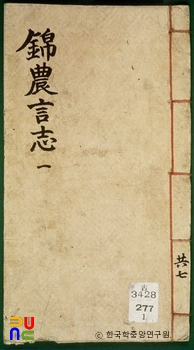 錦農言志
一
共七
古
3428
277
1
ⓒ 한국학중앙연구원